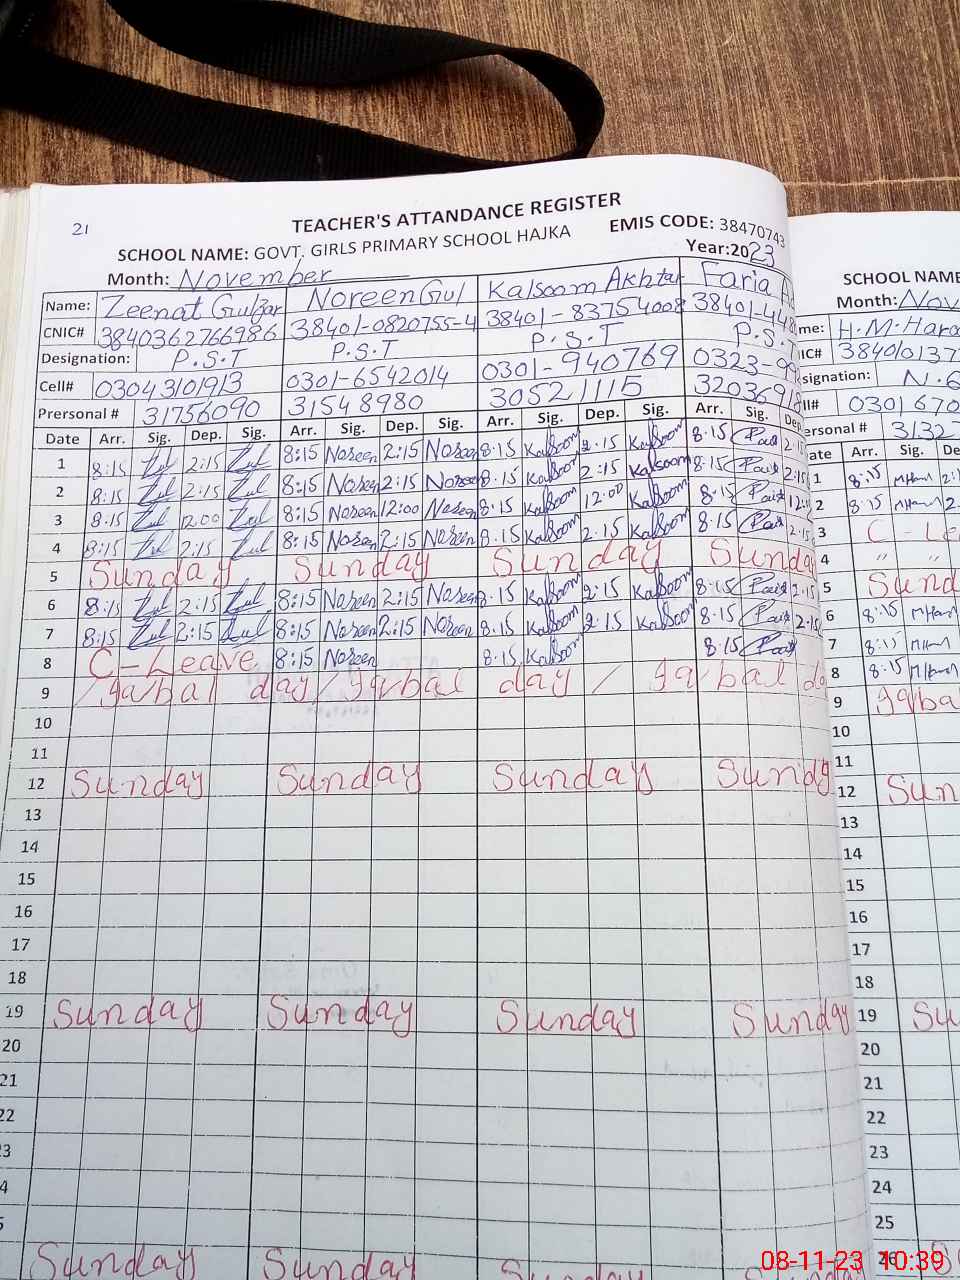 21
TEACHER'S ATTANDANCE REGISTER
SCHOOL NAME: GOVT. GIRLS PRIMARY SCHOOL HAJKA EMIS CODE: 38470743
Month: November Year:2023
Name: Zeenat Gulzar Noreen Gul Kalsoom Akhtar Faria
CNIC# 3840362766986 38401-0820755-4 38401-83754008 38401-448
Designation: P.S.T P.S.T P.S.T P.S.T
Cell# 03043101913 0301-6542014 0301-940769 0323-99
Prersonal # 31756090 31548980 30521115 3203691
Date Arr. Sig. Dep. Sig. Arr. Sig. Dep. Sig. Arr. Sig. Dep. Sig. Arr. Sig. Dep.
1 8:15 2:15 8:15 Noreen 2:15 Noreen 8.15 Kalsoom 2.15 Kalsoom 8.15 2.15
2 8:15 2:15 8:15 Noreen 2:15 Noreen 8.15 Kalsoom 2:15 Kalsoom 8.15 2:15
3 8:15 12:00 8:15 Noreen 12:00 Noreen 8.15 Kalsoom 12:00 Kalsoom 8.15
4 8:15 2:15 8:15 Noreen 2:15 Noreen 8.15 Kalsoom 2.15 Kalsoom 8.15 2.15
5 Sunday Sunday Sunday Sunday
6 8:15 2:15 8:15 Noreen 2:15 Noreen 8.15 Kalsoom 2.15 Kalsoom 8.15 2.15
7 8:15 2:15 8:15 Noreen 2:15 Noreen 8.15 Kalsoom 2.15 Kalsoom 8.15 2.15
8 C-Leave 8:15 Noreen 8.15 Kalsoom 8.15
9 Iqbal day / Iqbal day / Iqbal da
10
11
12 Sunday Sunday Sunday Sunday
13
14
15
16
17
18
19 Sunday Sunday Sunday Sunday
20
21
22
3
4
5
Sunday Sunday Sunday Sunday
SCHOOL NAME
Month: Nov
me: H.M.Haroo
IC# 384010137
signation: N.
ll# 0301670
ersonal # 3132
ate Arr. Sig. De
1 8:15 2:1
2 8:15 2
3 C-Le
4 " "
5 Sund
6 8:15
7 8:15
8 8.15
9 Iqba
10
11
12 Sun
13
14
15
16
17
18
19 Su
20
21
22
23
24
25
26 S
08-11-23 10:39